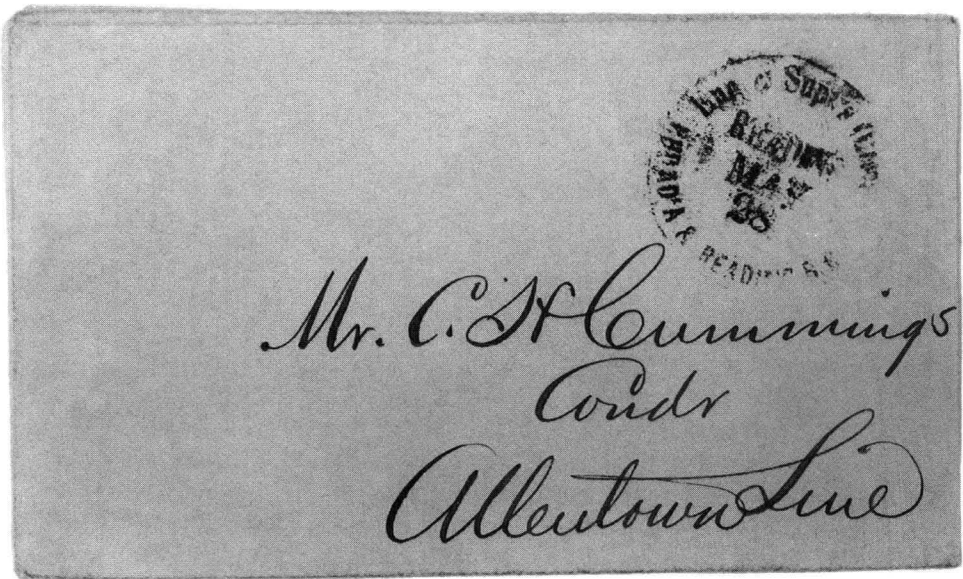 Line Supt's
READING
MAY
28
PHILAD'A & READING R.R.
Mr. C. H Cummings
Condr
Allentown Line